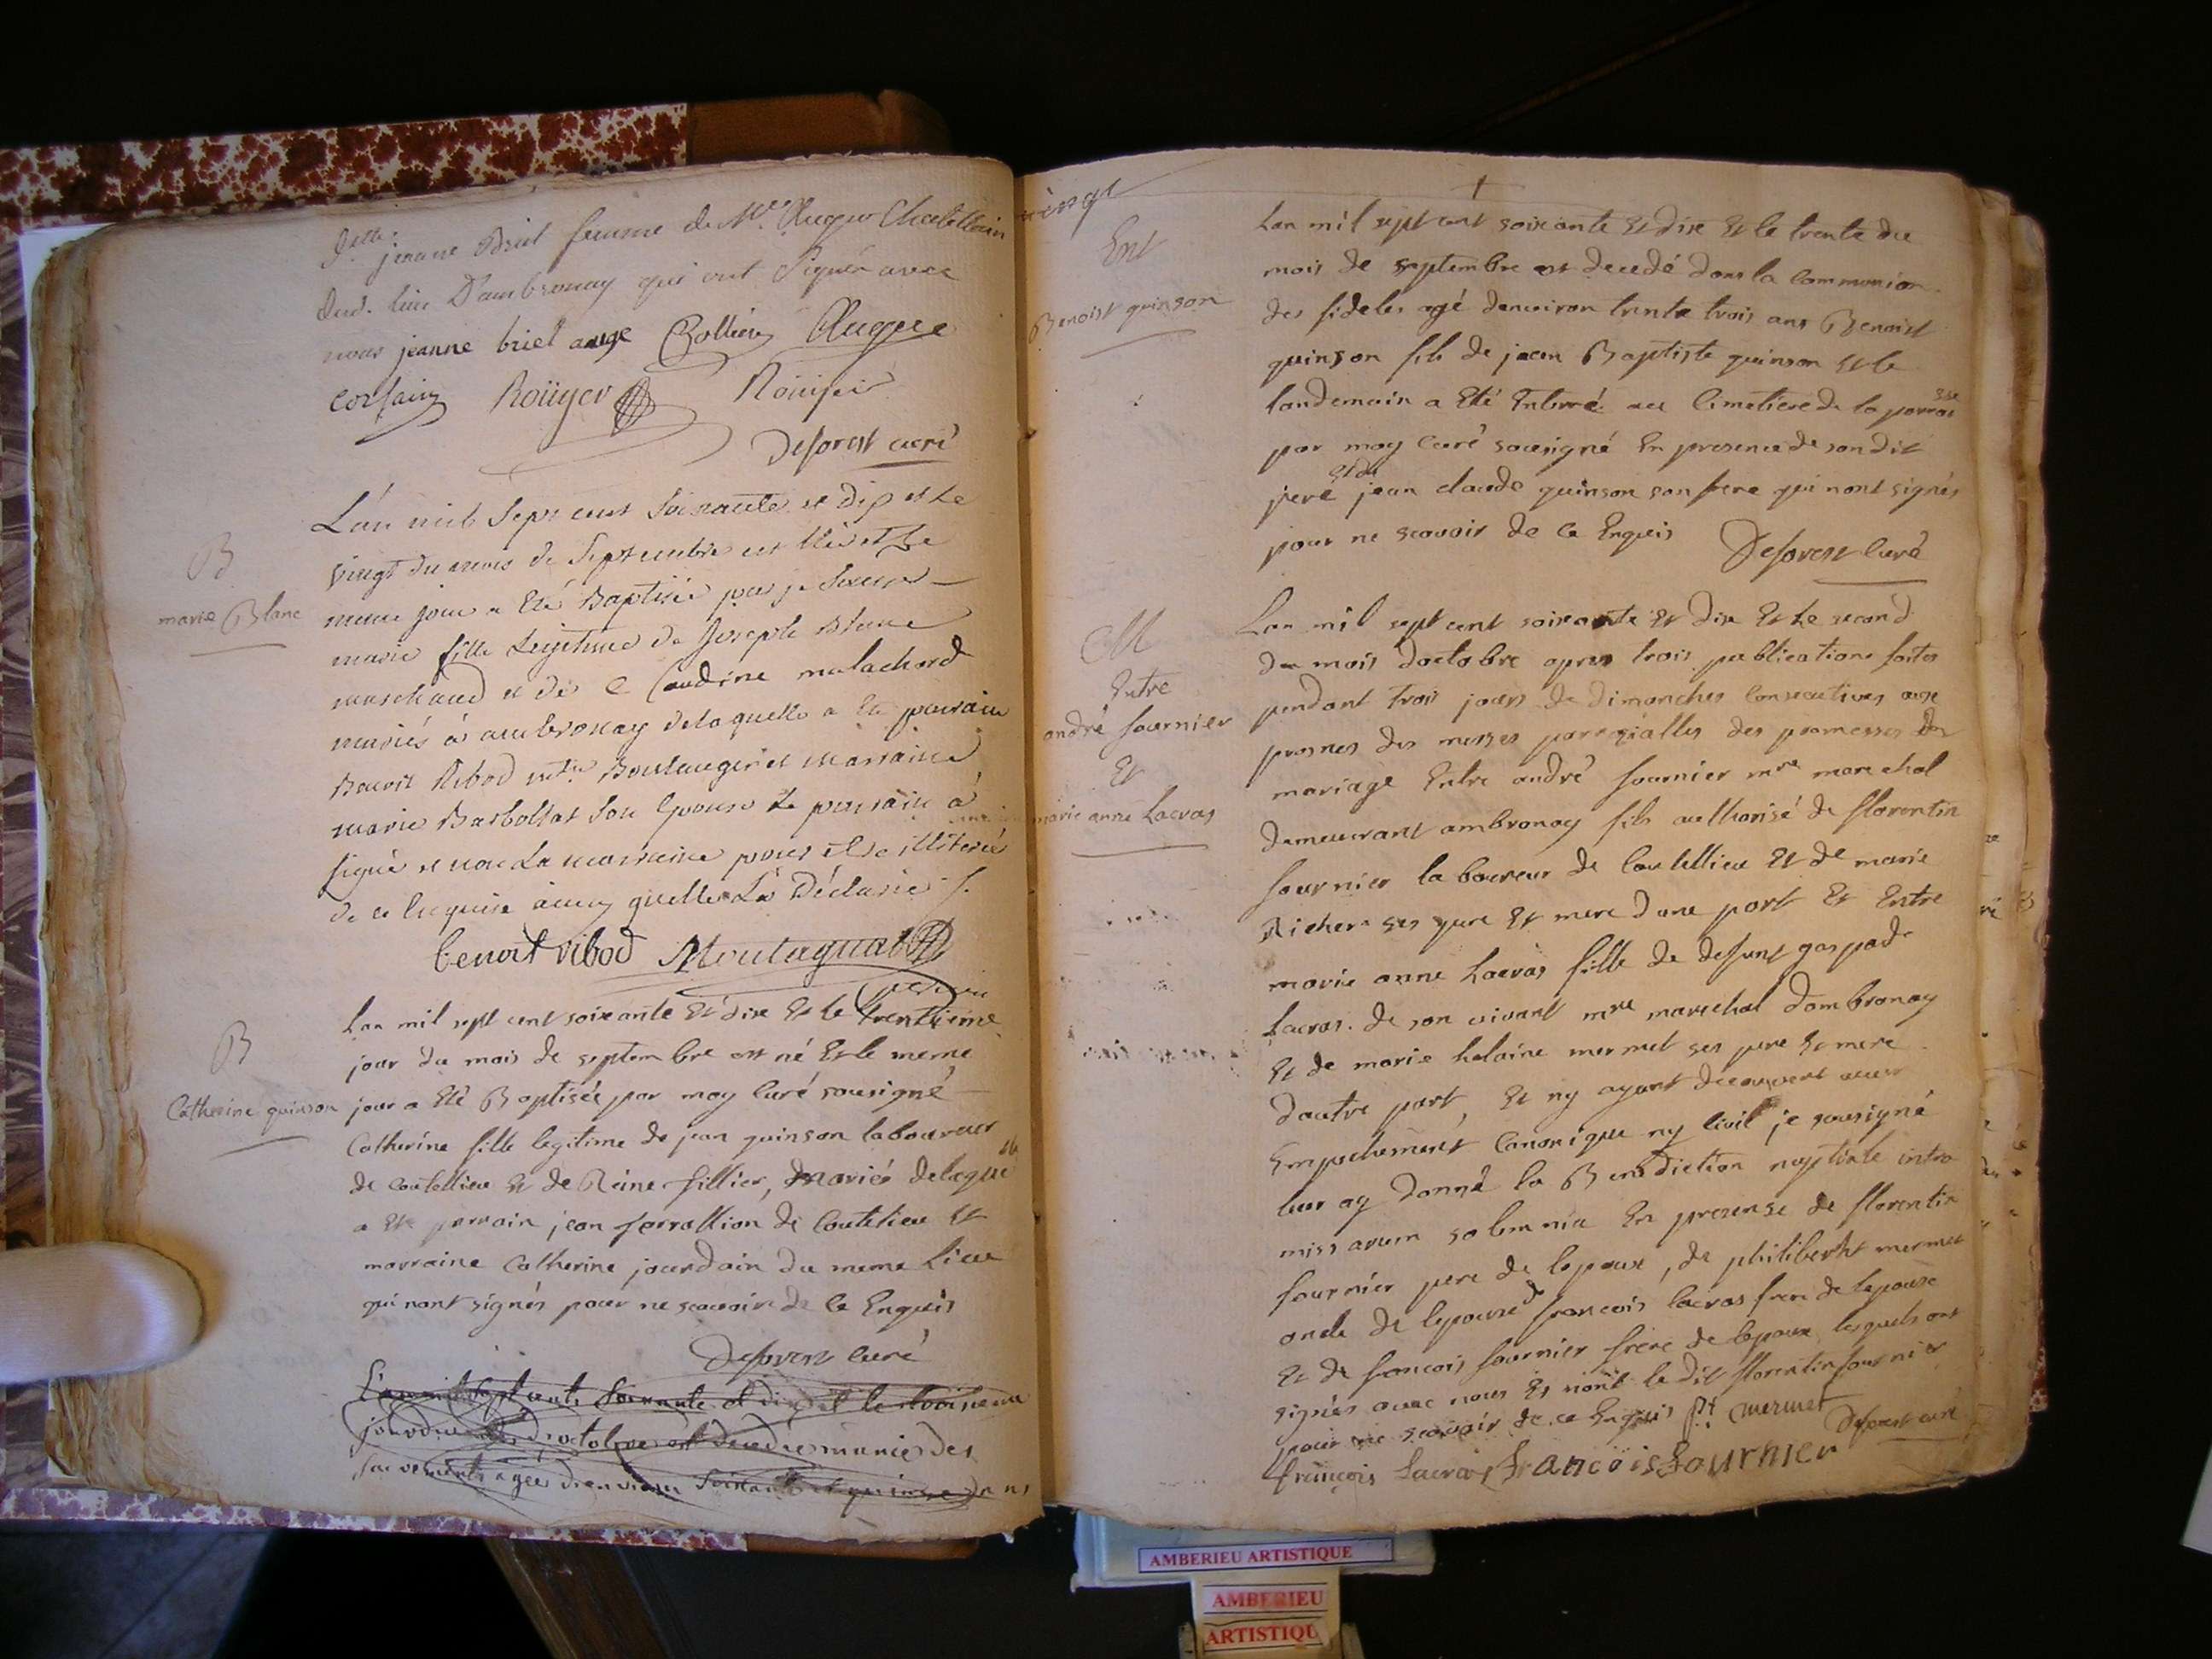 Delle. jeanne Briel femme de Mr. Auger Chatellain
dud. lieu D'ambronay qui ont Signés avec
nous jeanne briel auge Bollieu Auger
Corsain Roüyer Rouyer
Deforest curé
B
marie Blanc
L'an mil Sept cent Soixante et dix et Le
vingt du mois de Septembre est Née et Le
meme jour a Eté Baptisée par je Soussigné
marie fille Legitime de Joseph Blanc
marchand et de Claudine malachard
mariés à ambronay de laquelle a Eté parrain
Benoit Ribod me. Boulanger et marraine
marie Barbollat Son Epouse Le parrain a
Signé et non La marraine pour etre illiterée
de ce Enquise ainsy quelle L'a Déclarée
benoit ribod Montagnat
vicaire
B
Catherine quinson
Lan mil sept cent soixante Et dix Et le trentieme
jour du mois de septembre est né Et le meme
jour a Eté Baptisée par moy Curé sousigné
Catherine fille legitime de jean quinson laboureur
de coutellieu Et de Reine fillier, mariés delaquelle
a Eté parrain jean ferrallion de Coutelieu Et
marraine Catherine jourdain du meme Lieu
qui nont signés pour ne scavoir de ce Enquis
Deforest Curé
L'an mil Sept cents Soixante et dix et le troisieme
jour du mois d'octobre est decedée munie des
Sacrements agée d'environ Soixante et quinze ans
vingt
Ent
Benoist quinson
Lan mil sept cent soixante Et dix Et le trente du
mois de septembre est decedé dans la Communion
des fideles agé denviron trente trois ans Benoist
quinson fils de jean Baptiste quinson Et le
landemain a Eté Enterré au Cimetiere de la parroisse
par moy Curé sousigné En presence de son dit
pere et de jean claude quinson son frere qui nont signés
pour ne scavoir de ce Enquis Deforest Curé
M
Entre
andré fournier
Et
marie anne Lacras
Lan mil sept cent soixante Et dix Et Le second
du mois doctobre apres trois publications faites
pendant trois jours de dimanches Consecutives aux
prosnes des messes paroissialles des promesses de
mariage Entre andré fournier mre marechal
demeurant ambronay fils authorisé de florentin
fournier laboureur de Coutellieu Et de marie
Richer ses pere Et mere dune part Et Entre
marie anne Lacras fille de defunt gaspad
Lacras de son vivant mre marechal dambronay
Et de marie helaine mermet ses pere Et mere
dautre part, Et ny ayant decouvert aucun
Empechement Canonique ny Civil je sousigné
leur ay donné la Benediction nuptiale intra
missarum solemnia En presense de florentin
fournier pere de lepoux, de philibert mermet
oncle de lepouse de francois lacras frere de lepouse
Et de francois fournier frere de lepoux lesquels ont
signés avec nous Et nont le dit florentin fournier
pour ne scavoir de ce Enquis Pt mermet Deforest curé
françois Lacras francois fournier
AMBERIEU ARTISTIQUE
AMBERIEU
ARTISTIQU